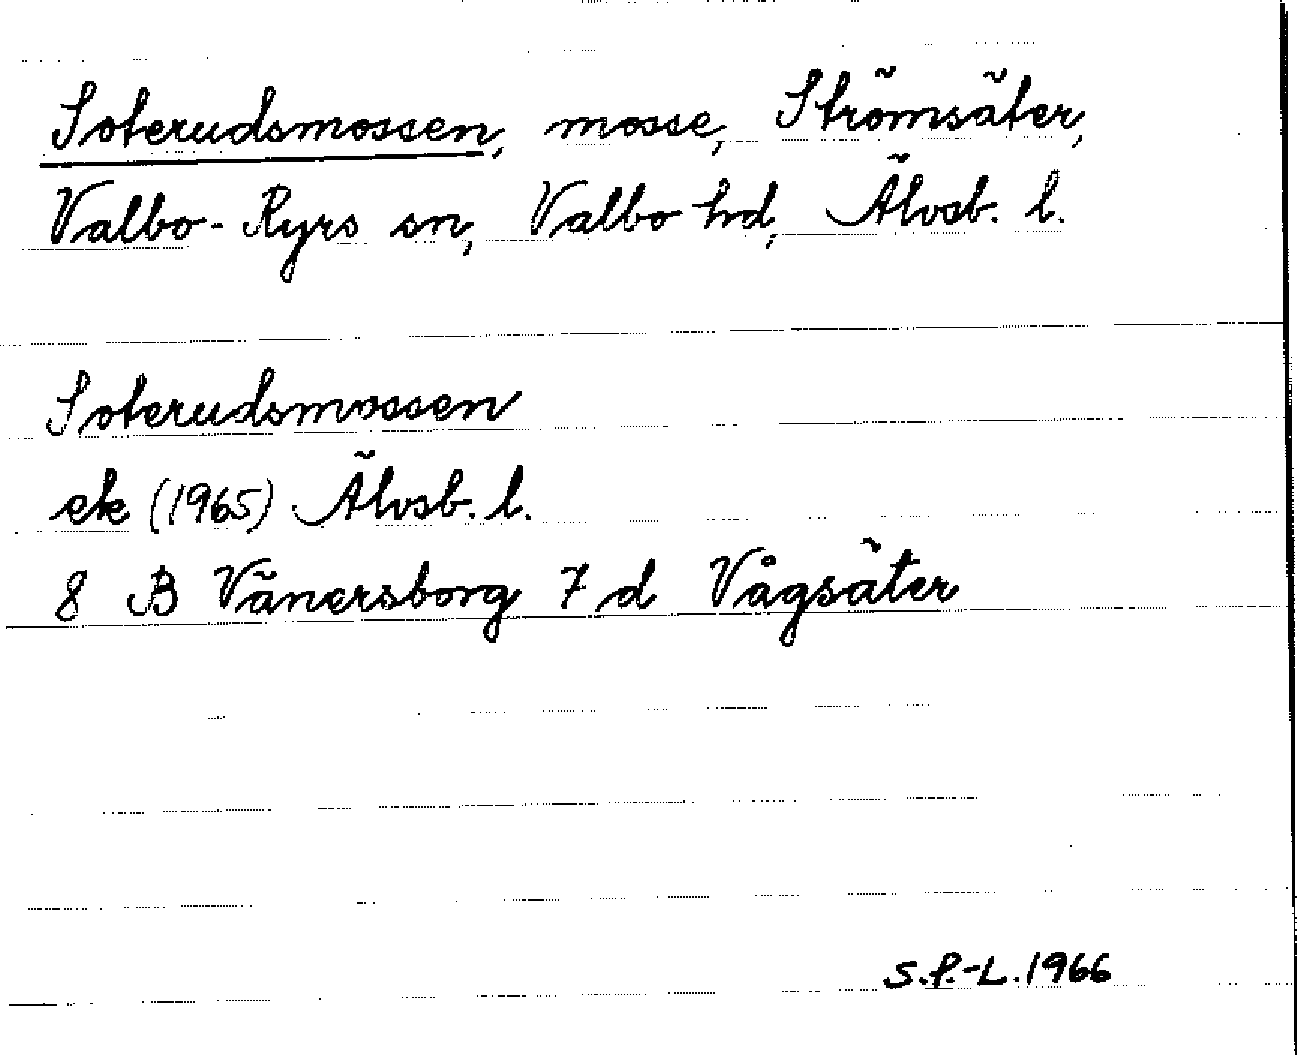 Soterudsmossen, mosse, Strömsäter,
Valbo-Ryrs sn, Valbo hd, Älvsb. l.
Soterudsmossen
ek (1965) Älvsb. l.
8 B Vänersborg 7 d Vågsäter
S.P.-L. 1966